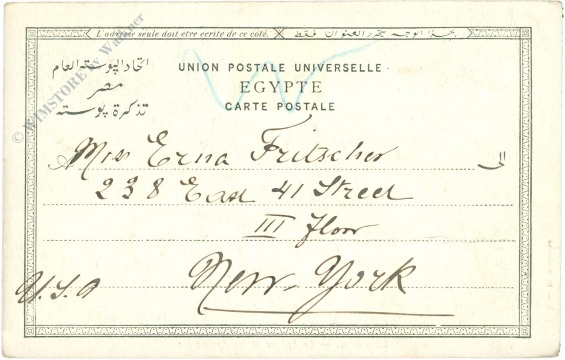 L'adresse seule doit être écrite de ce côté. بهذا الوجه يحرر العنوان فقط
اتحاد البوسته العام
مصر
تذكرة بوسته
UNION POSTALE UNIVERSELLE.
EGYPTE
CARTE POSTALE
Miss Erna Fritscher
الى
238 East 41 Street
III Floor
New-York
U.S.A
© WIMSTORE